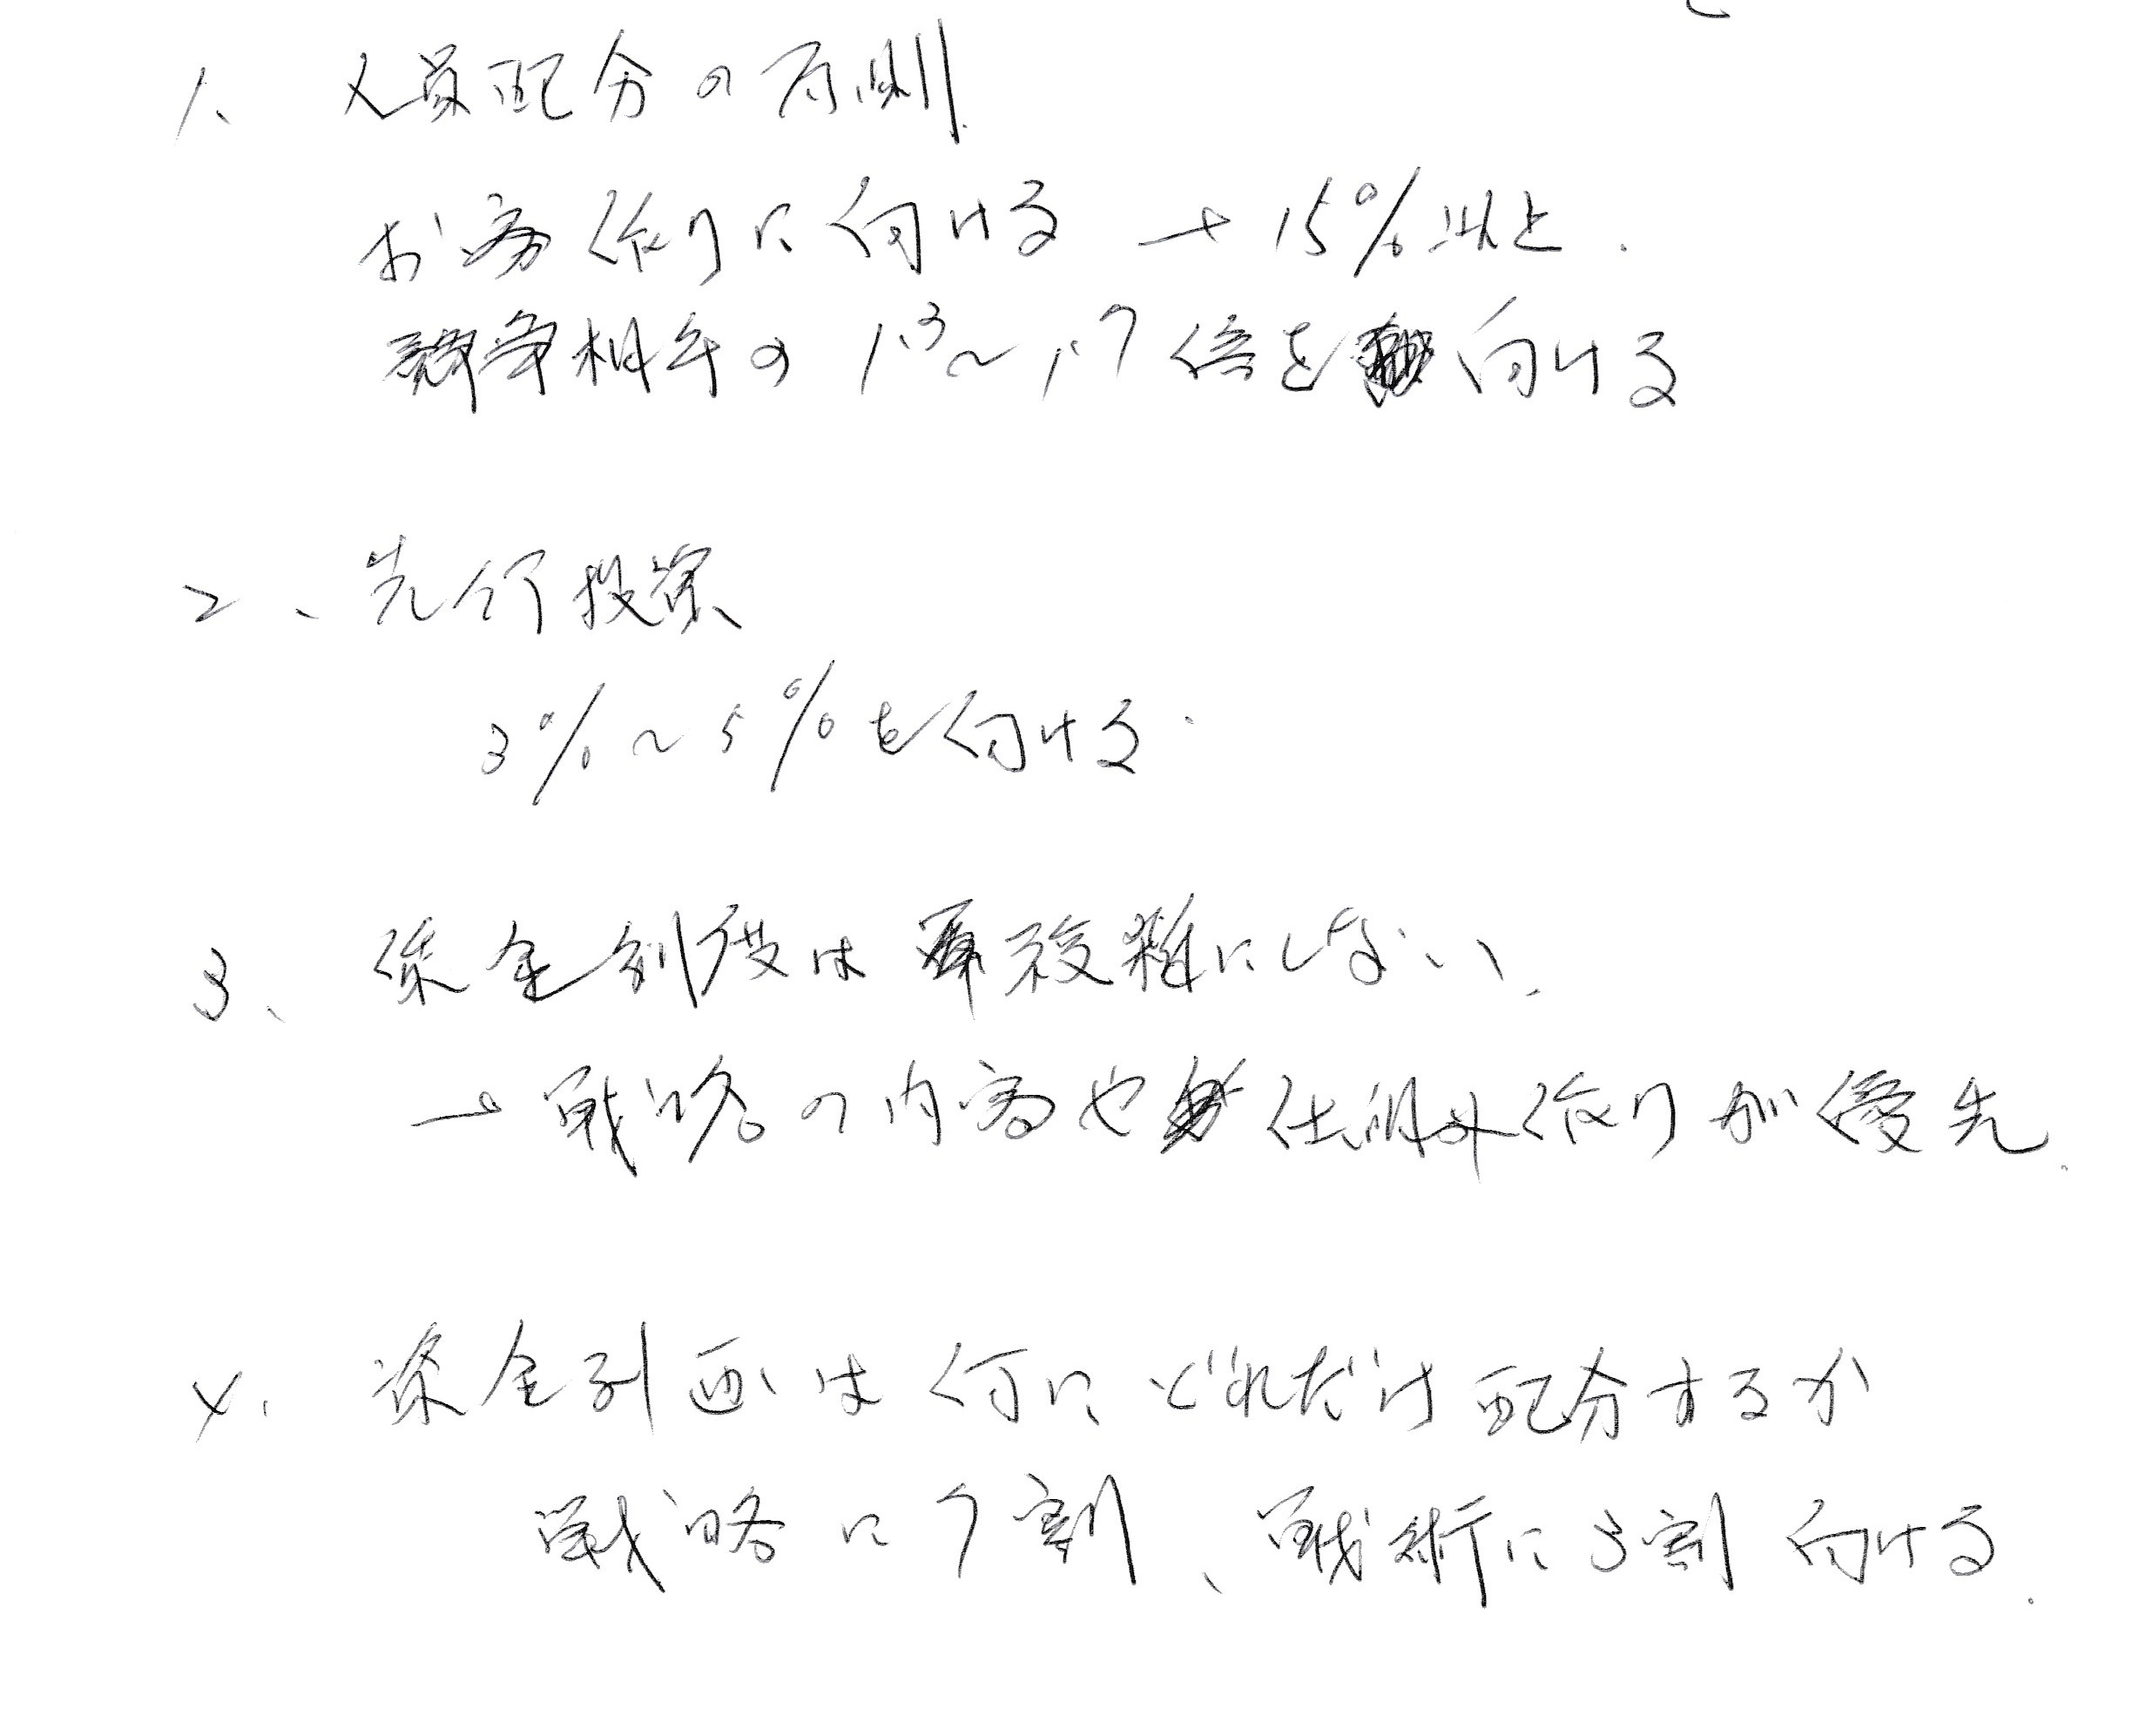 1、人員配分の原則
お客作りに向ける → 15%以上.
競争相手の 1.3〜1.7倍を向ける
2、先行投資
3%〜5%を向ける.
3、金制度は複雑にしない.
→戦略の内容や仕組み作りが優先.
4、資金引
は何にどれだけ配分するか
戦略に7割、戦術に3割向ける.